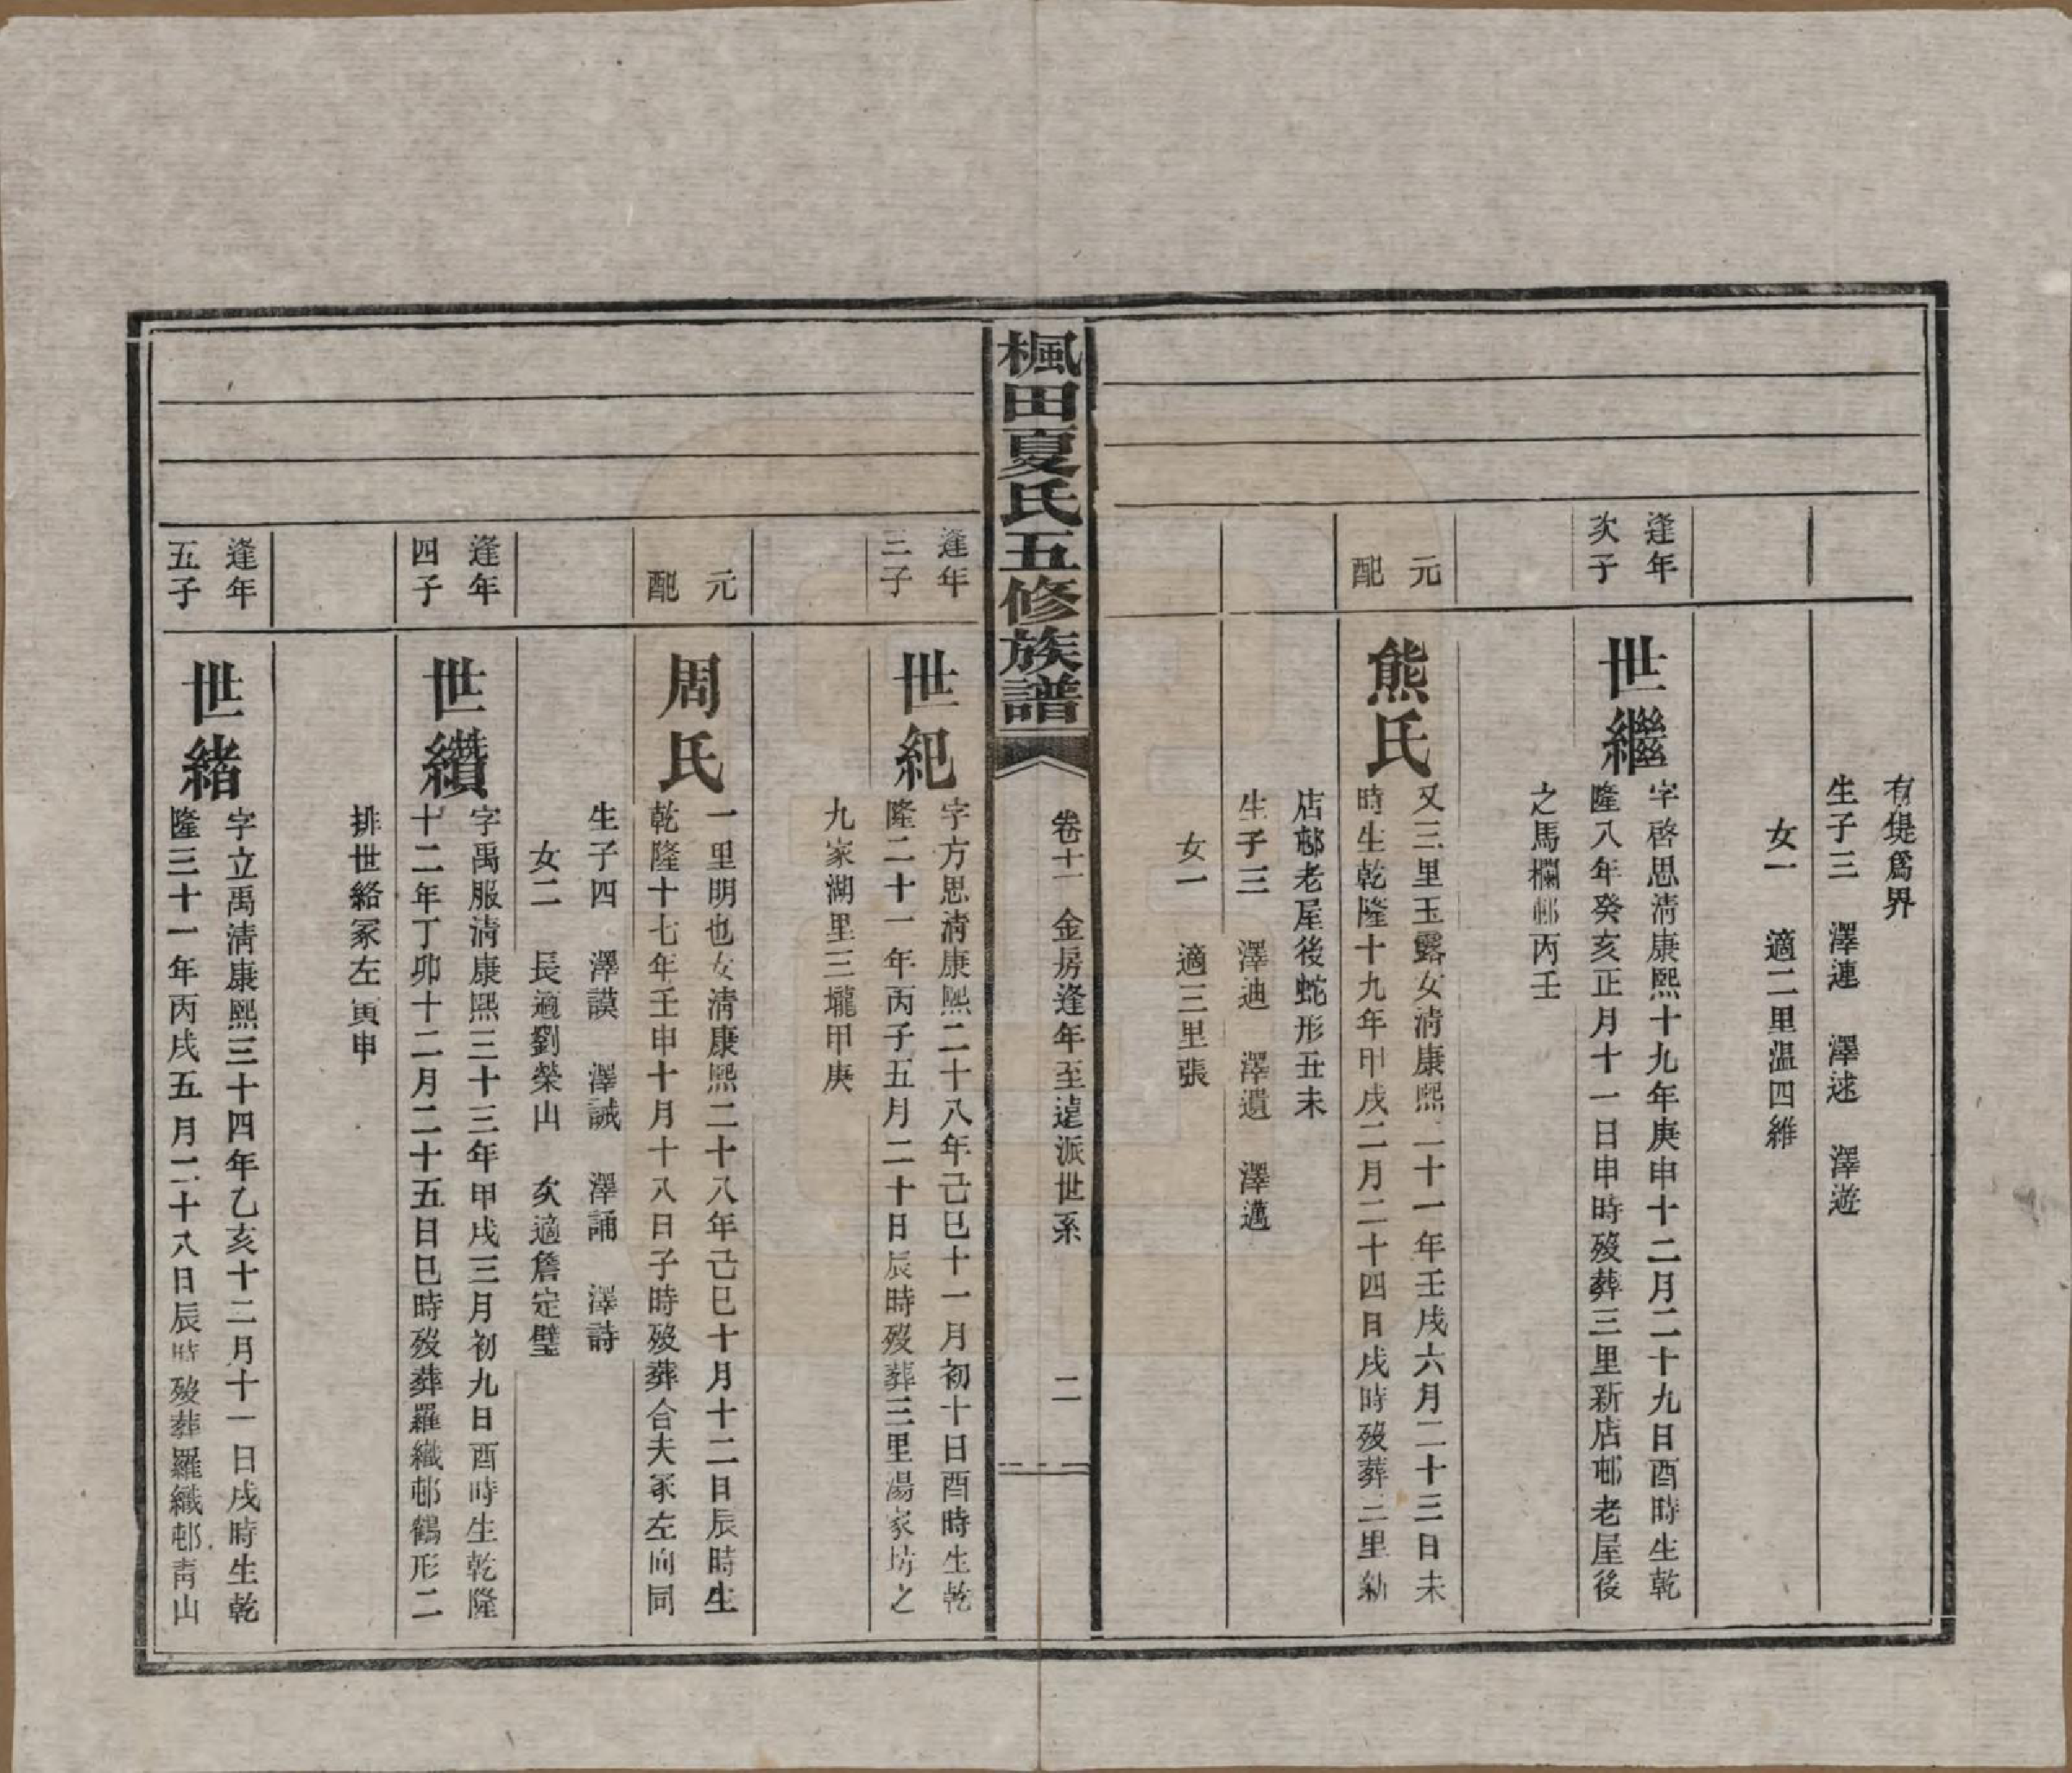 有㨗爲界
生子三　澤連　澤逑　澤遊
女一　適二里温四維
逢年
次子
世繼
字啓思淸康熙十九年庚申十二月二十九日酉時生乾
隆八年癸亥正月十一日申時歿葬三里新店邨老屋後
之馬欄邨丙壬
元
配
熊氏
又三里玉露女淸康熙二十一年壬戌六月二十三日未
時生乾隆十九年甲戌二月二十四日戌時歿葬三里新
店邨老屋後蛇形丑未
生子三　澤迪　澤遺　澤邁
女一　適三里張
楓田夏氏五修族譜
卷十一　金房逢年至遠派世系　二
逢年
三子
世紀
字方思淸康熙二十八年己巳十一月初十日酉時生乾
隆二十一年丙子五月二十日辰時歿葬三里湯家坊之
九家湖里三壠甲庚
元
配
周氏
一里明也女淸康熙二十八年己巳十月十二日辰時生
乾隆十七年壬申十月十八日子時歿葬合夫冢左向同
生子四　澤謨　澤誠　澤誦　澤詩
女二　長適劉榮山　次適詹定璧
逢年
四子
世纘
字禹服淸康熙三十三年甲戌三月初九日酉時生乾隆
十二年丁卯十二月二十五日巳時歿葬羅織邨鶴形二
排世絡冢左寅申
逢年
五子
世緒
字立禹淸康熙三十四年乙亥十二月十一日戌時生乾
隆三十一年丙戌五月二十八日辰時歿葬羅織邨靑山